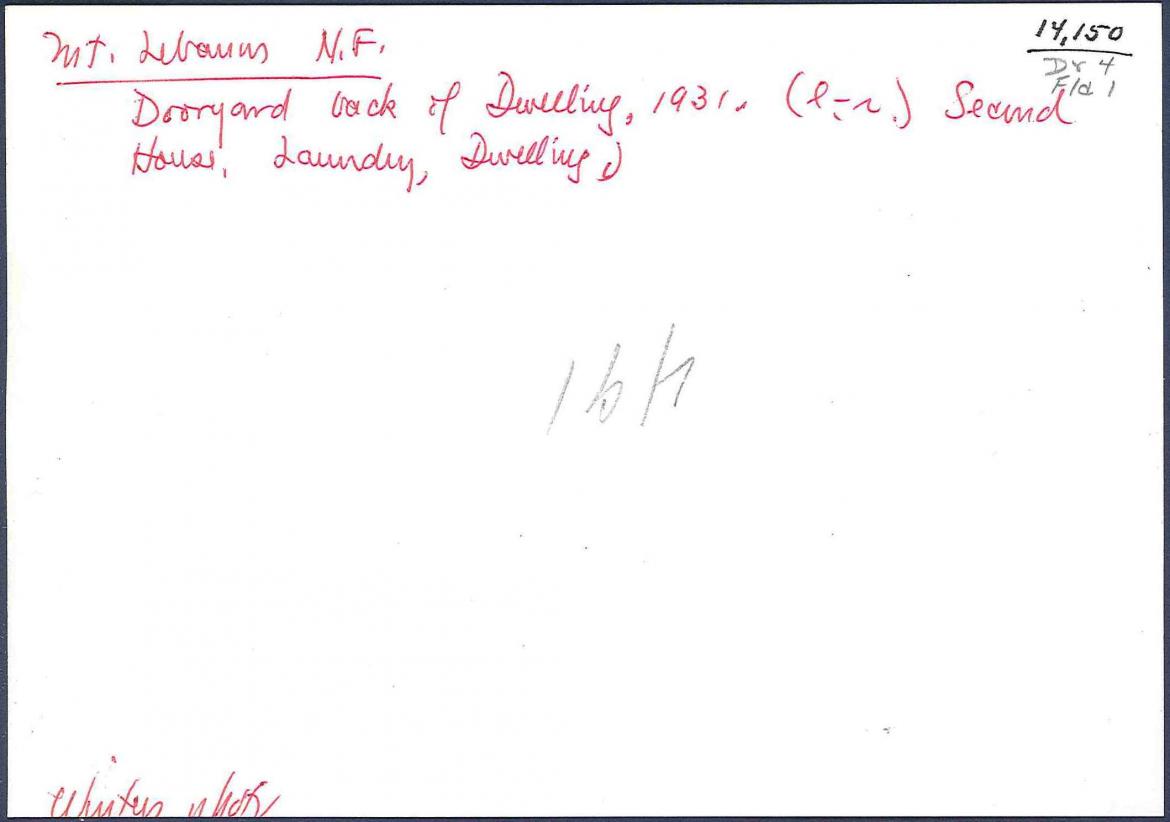 Mt. Lebanon N.F.
14,150
Dr 4
Fld 1
Dooryard back of Dwelling, 1931. (l-r.) Second
House, Laundry, Dwelling)
Winter photo